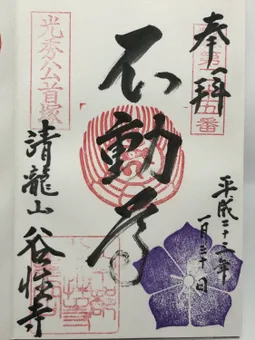 奉拝
第十五番
平成二十三年
一月三十日
不動尊
光秀公首塚
清龍山 谷性寺